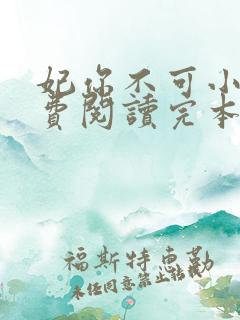 妃你不可小
費閱讀完本
福斯特惠勒
未经同意禁止转载